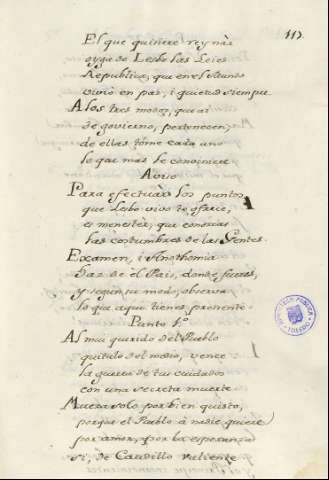 117
El que quisiere reynàr
oyga de Lesbo las Leies
Republica, que en el Mundo
vivió en paz, i quietud siempre
A los tres modos, que ai
de govierno, pertenecen;
de ellas tóme cada uno
lo que mas le conviniere
Aviso
Para efectuàr los puntos
que Lesbo vivo te ofrece,
es menestèr, que conozcas
las costumbres de las Gentes.
Examen, i Anothomia
haz de el Pais, donde fueres,
y segun su modo, observa
lo que aqui tienes presente.
Punto 1º
Al mui querido del Pueblo
quitalo del medio, vence
la guerra de tus cuidados
con una secreta muerte
Muera solo por bien quisto,
porque el Pueblo à nadie quiere
por amor, por la esperanza
si, de Caudillo valiente
BIBLIOTECA PUBLICA
TOLEDO